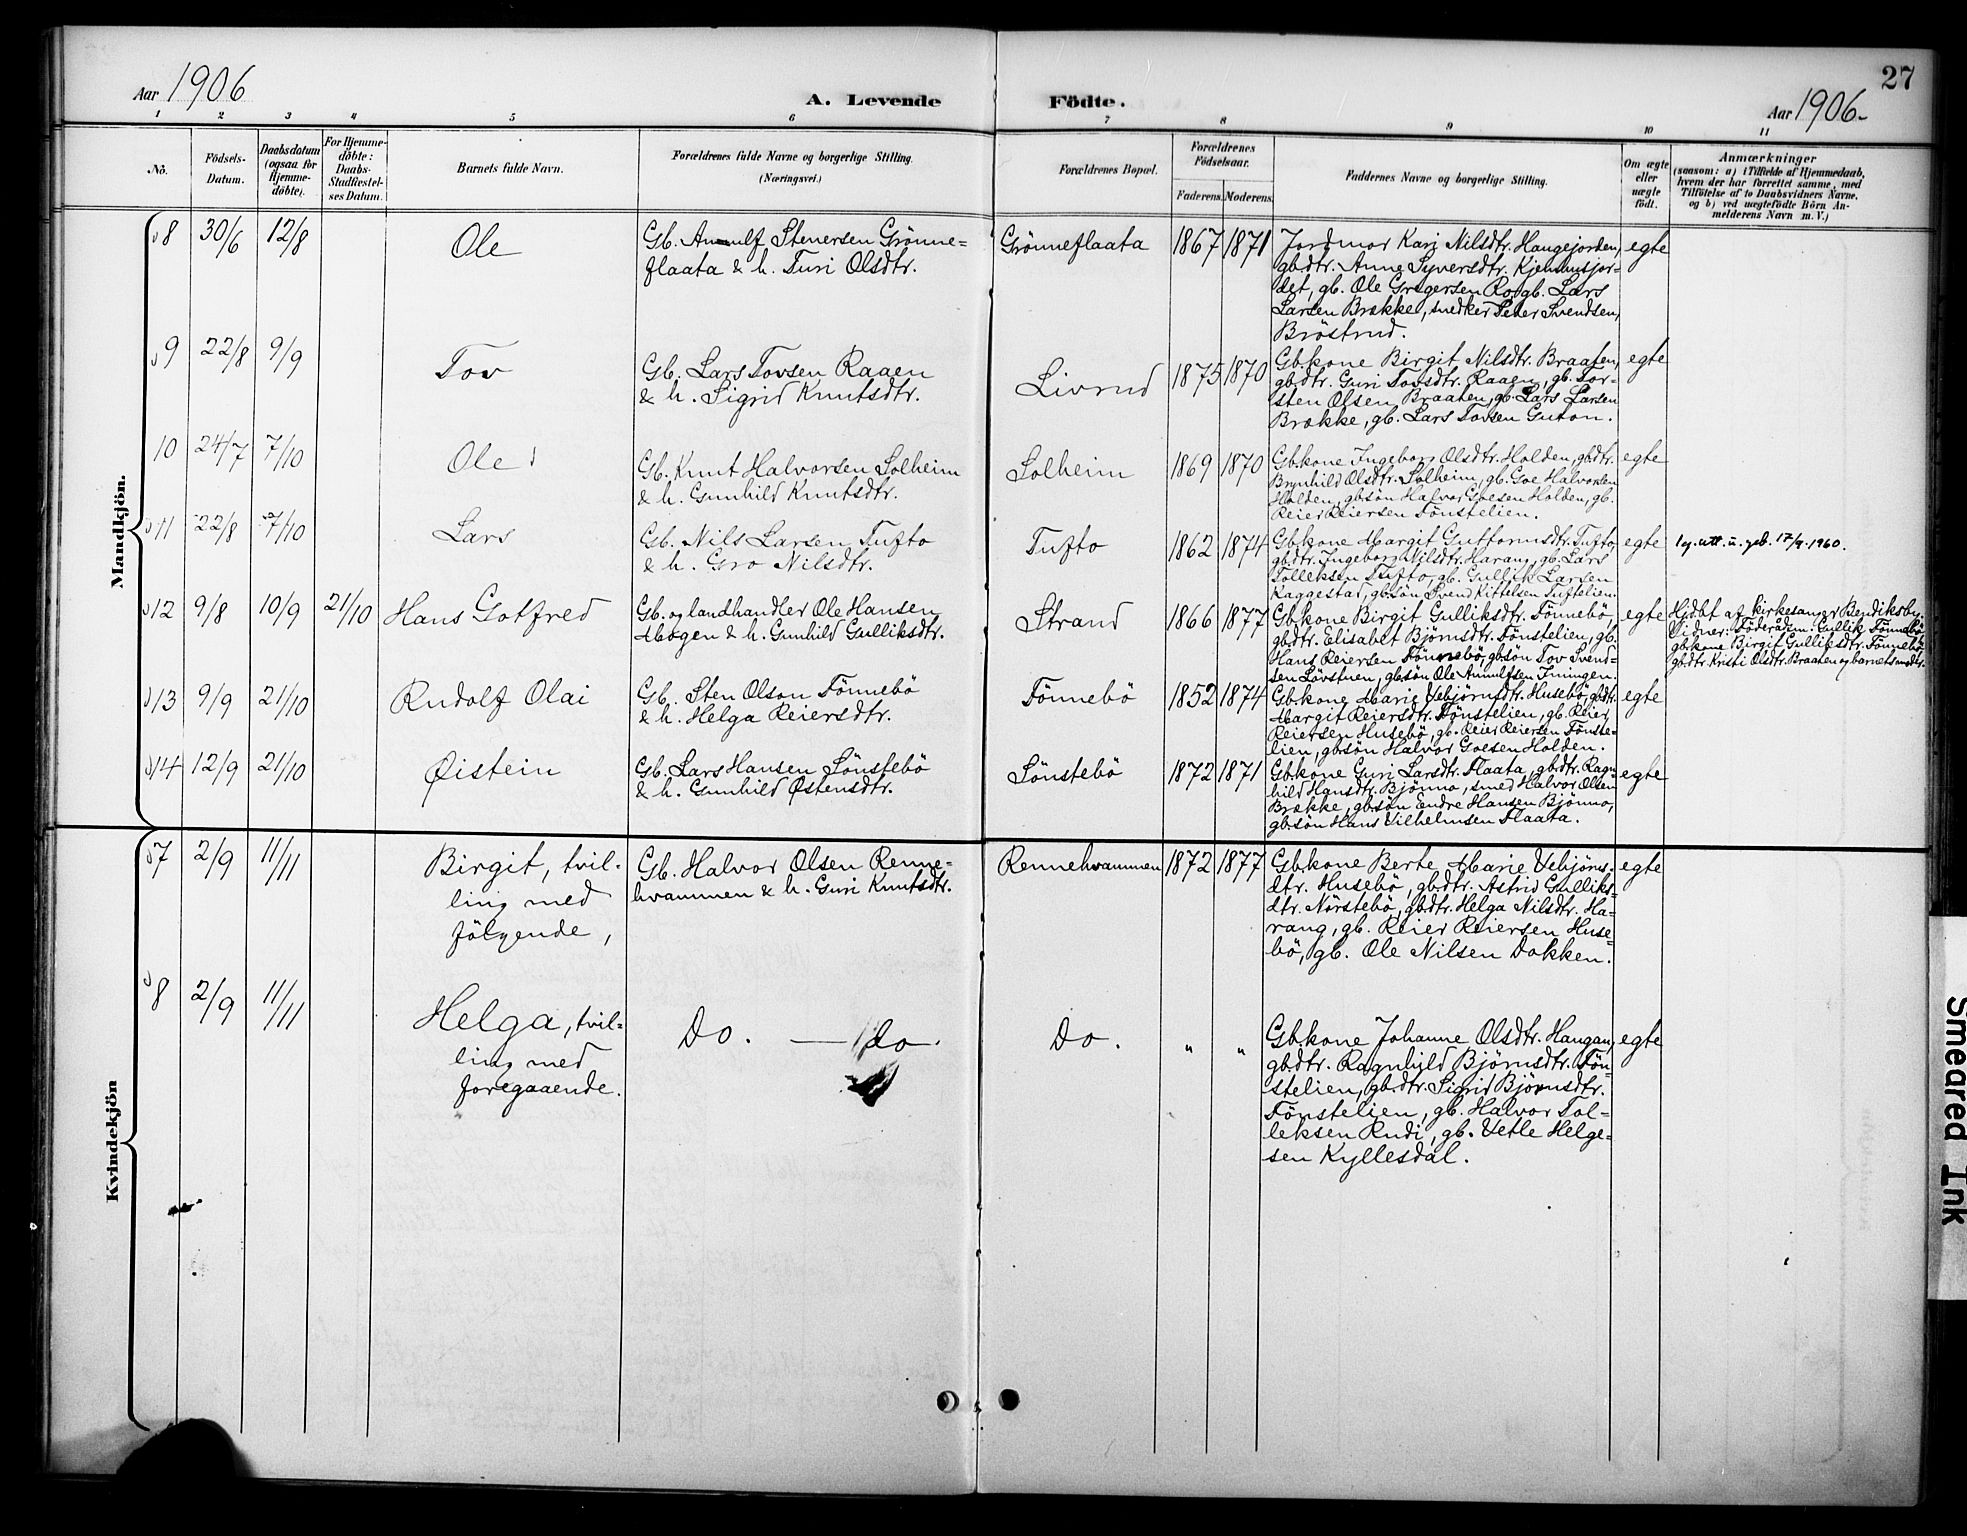 27
Aar 1906
A. Levende Födte.
Aar 1906-
1 2 3 4 5 6 7 8 9 10 11
No.
Födsels-
Datum.
Daabsdatum
(ogsaa for
Hjemme-
döbte).
For Hjemme-
döbte:
Daabs-
Stadfæstel-
ses Datum.
Barnets fulde Navn.
Forældrenes fulde Navne og borgerlige Stilling.
(Næringsvei.)
Forældrenes Bopæl.
Forældrenes
Födselsaar.
Faderens. Moderens.
Faddernes Navne og borgerlige Stilling.
Om ægte
eller
uægte
födt.
Anmærkninger
(saasom: a) i Tilfælde af Hjemmedaab,
hvem der har forrettet samme, med
Tilföielse af to Daabsvidners Navne,
og b) ved uægtefödte Börn An-
melderens Navn m. V.)
Mandkjön.
8 30/6 12/8
Ole
Gb. Anulf Stenersen Grönne-
flaata & h. Turi Olsdtr.
Grönneflaata
1867 1871
Jordmor Kari Nilsdtr. Haugejorden,
gbdtr. Anne Syversdtr. Kjemhusjor-
det, gb. Ole Gregersen Ro, gb. Lars
Larsen Brække, snedker Peter Svendsen,
Bröstrud.
egte
9 22/8 9/9
Tov
Gb. Lars Tovsen Raaen
& h. Sigrid Knutsdtr.
Livrud
1875 1870
Gbkone Birgit Nilsdtr. Braaten,
gbdtr. Guri Tovsdtr. Raaen, gb. Tor-
sten Olsen Braaten, gb. Lars Larsen
Brække, gb. Lars Tovsen Guton.
egte
10 24/7 7/10
Ole
Gb. Knut Halvorsen Solheim
& h. Gunhild Knutsdtr.
Solheim
1869 1870
Gbkone Ingeborg Olsdtr. Holden, gbdtr.
Brynhild Olsdtr. Solheim, gb. Goe Halvorsen
Holden, gbsön Halvor Goesen Holden, gb.
Reier Reiersen Fönstelien.
egte
11 22/8 7/10
Lars
Gb. Nils Larsen Tufto
& h. Gro Nilsdtr.
Tufto
1862 1874
Gbkone Margit Guttormsdtr. Tufto,
gbdtr. Ingeborg Nilsdtr. Harang, gb. Lars
Tolleksen Tufto, gb. Gullik Larsen
Kaggestad, gbsön Svend Kittelsen Tuftelien.
egte
lg. utt. u. geb. 17/9. 1960.
12 9/8 10/9 21/10
Hans Gotfred
Gb. og landhandler Ole Hansen
Mogen & h. Gunhild Gulliksdtr.
Strand
1866 1877
Gbkone Birgit Gulliksdtr. Fönnebö,
gbdtr. Elisabet Björnsdtr. Fönstelien, gb.
Hans Reiersen Fönnebö, gbsön Tov Svend-
sen Lövstuen, gbsön Ole Anulfsen Juningen.
egte
Hjdbt af kirkesanger Bendiksby.
Vidner: Föderådsm. Gullik Fönnebö,
gbkone Birgit Gulliksdtr. Fönnebö
gbdtr Kristi Olsdtr. Braaten og barnets moder.
13 9/9 21/10
Rudolf Olai
Gb. Sten Olson Fönnebö
& h. Helga Reiersdtr.
Fönnebö
1852 1874
Gbkone Marie Vebjörnsdtr. Husebö, gbdtr.
Margit Reiersdtr. Fönstelien, gb. Reier
Reiersen Husebö, gb. Reier Reiersen Fönste-
lien, gbsön Halvor Goesen Holden.
egte
14 12/9 21/10
Øistein
Gb. Lars Hansen Sönstebö
& h. Gunhild Østensdtr.
Sönstebö
1872 1871
Gbkone Guri Larsdtr. Flaata, gbdtr. Ragn-
hild Hansdtr. Björmo, smed Halvor Olsen
Brække, gbsön Endre Hansen Björmo,
gbsön Hans Vilhelmsen Flaata.
egte
Kvindekjön
7 2/9 11/11
Birgit, tvil-
ling med
fölgende,
Gb. Halvor Olsen Renne-
hvammen & h. Guri Knutsdtr.
Rennehvammen
1872 1877
Gbkone Berte Marie Vebjörns-
dtr. Husebö, gbdtr. Astrid Gulliks-
dtr. Nörstebö, gbdtr. Helga Nilsdtr. Ha-
rang, gb. Reier Reiersen Huse-
bö, gb. Ole Nilsen Dokken.
egte
8 2/9 11/11
Helga, tvil-
ling med
foregaaende.
Do. — Do.
Do.
" "
Gbkone Johanne Olsdtr. Haugan,
gbdtr. Ragnhild Björnsdtr. Fön-
stelien, gbdtr. Sigrid Björnsdtr.
Fönstelien, gb. Halvor Tol-
leksen Rudi, gb. Vetle Helge-
sen Kyllesdal.
egte
Smeared Ink